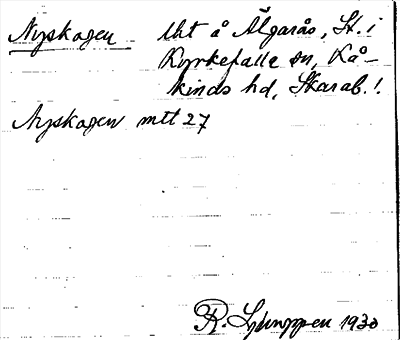 Nyskogen Uht å Älgarås, St. i
Kyrkefalla sn, Kå-
kinds hd, Skarab. l.
Nyskogen mtt 27
R. Ljunggren 1930